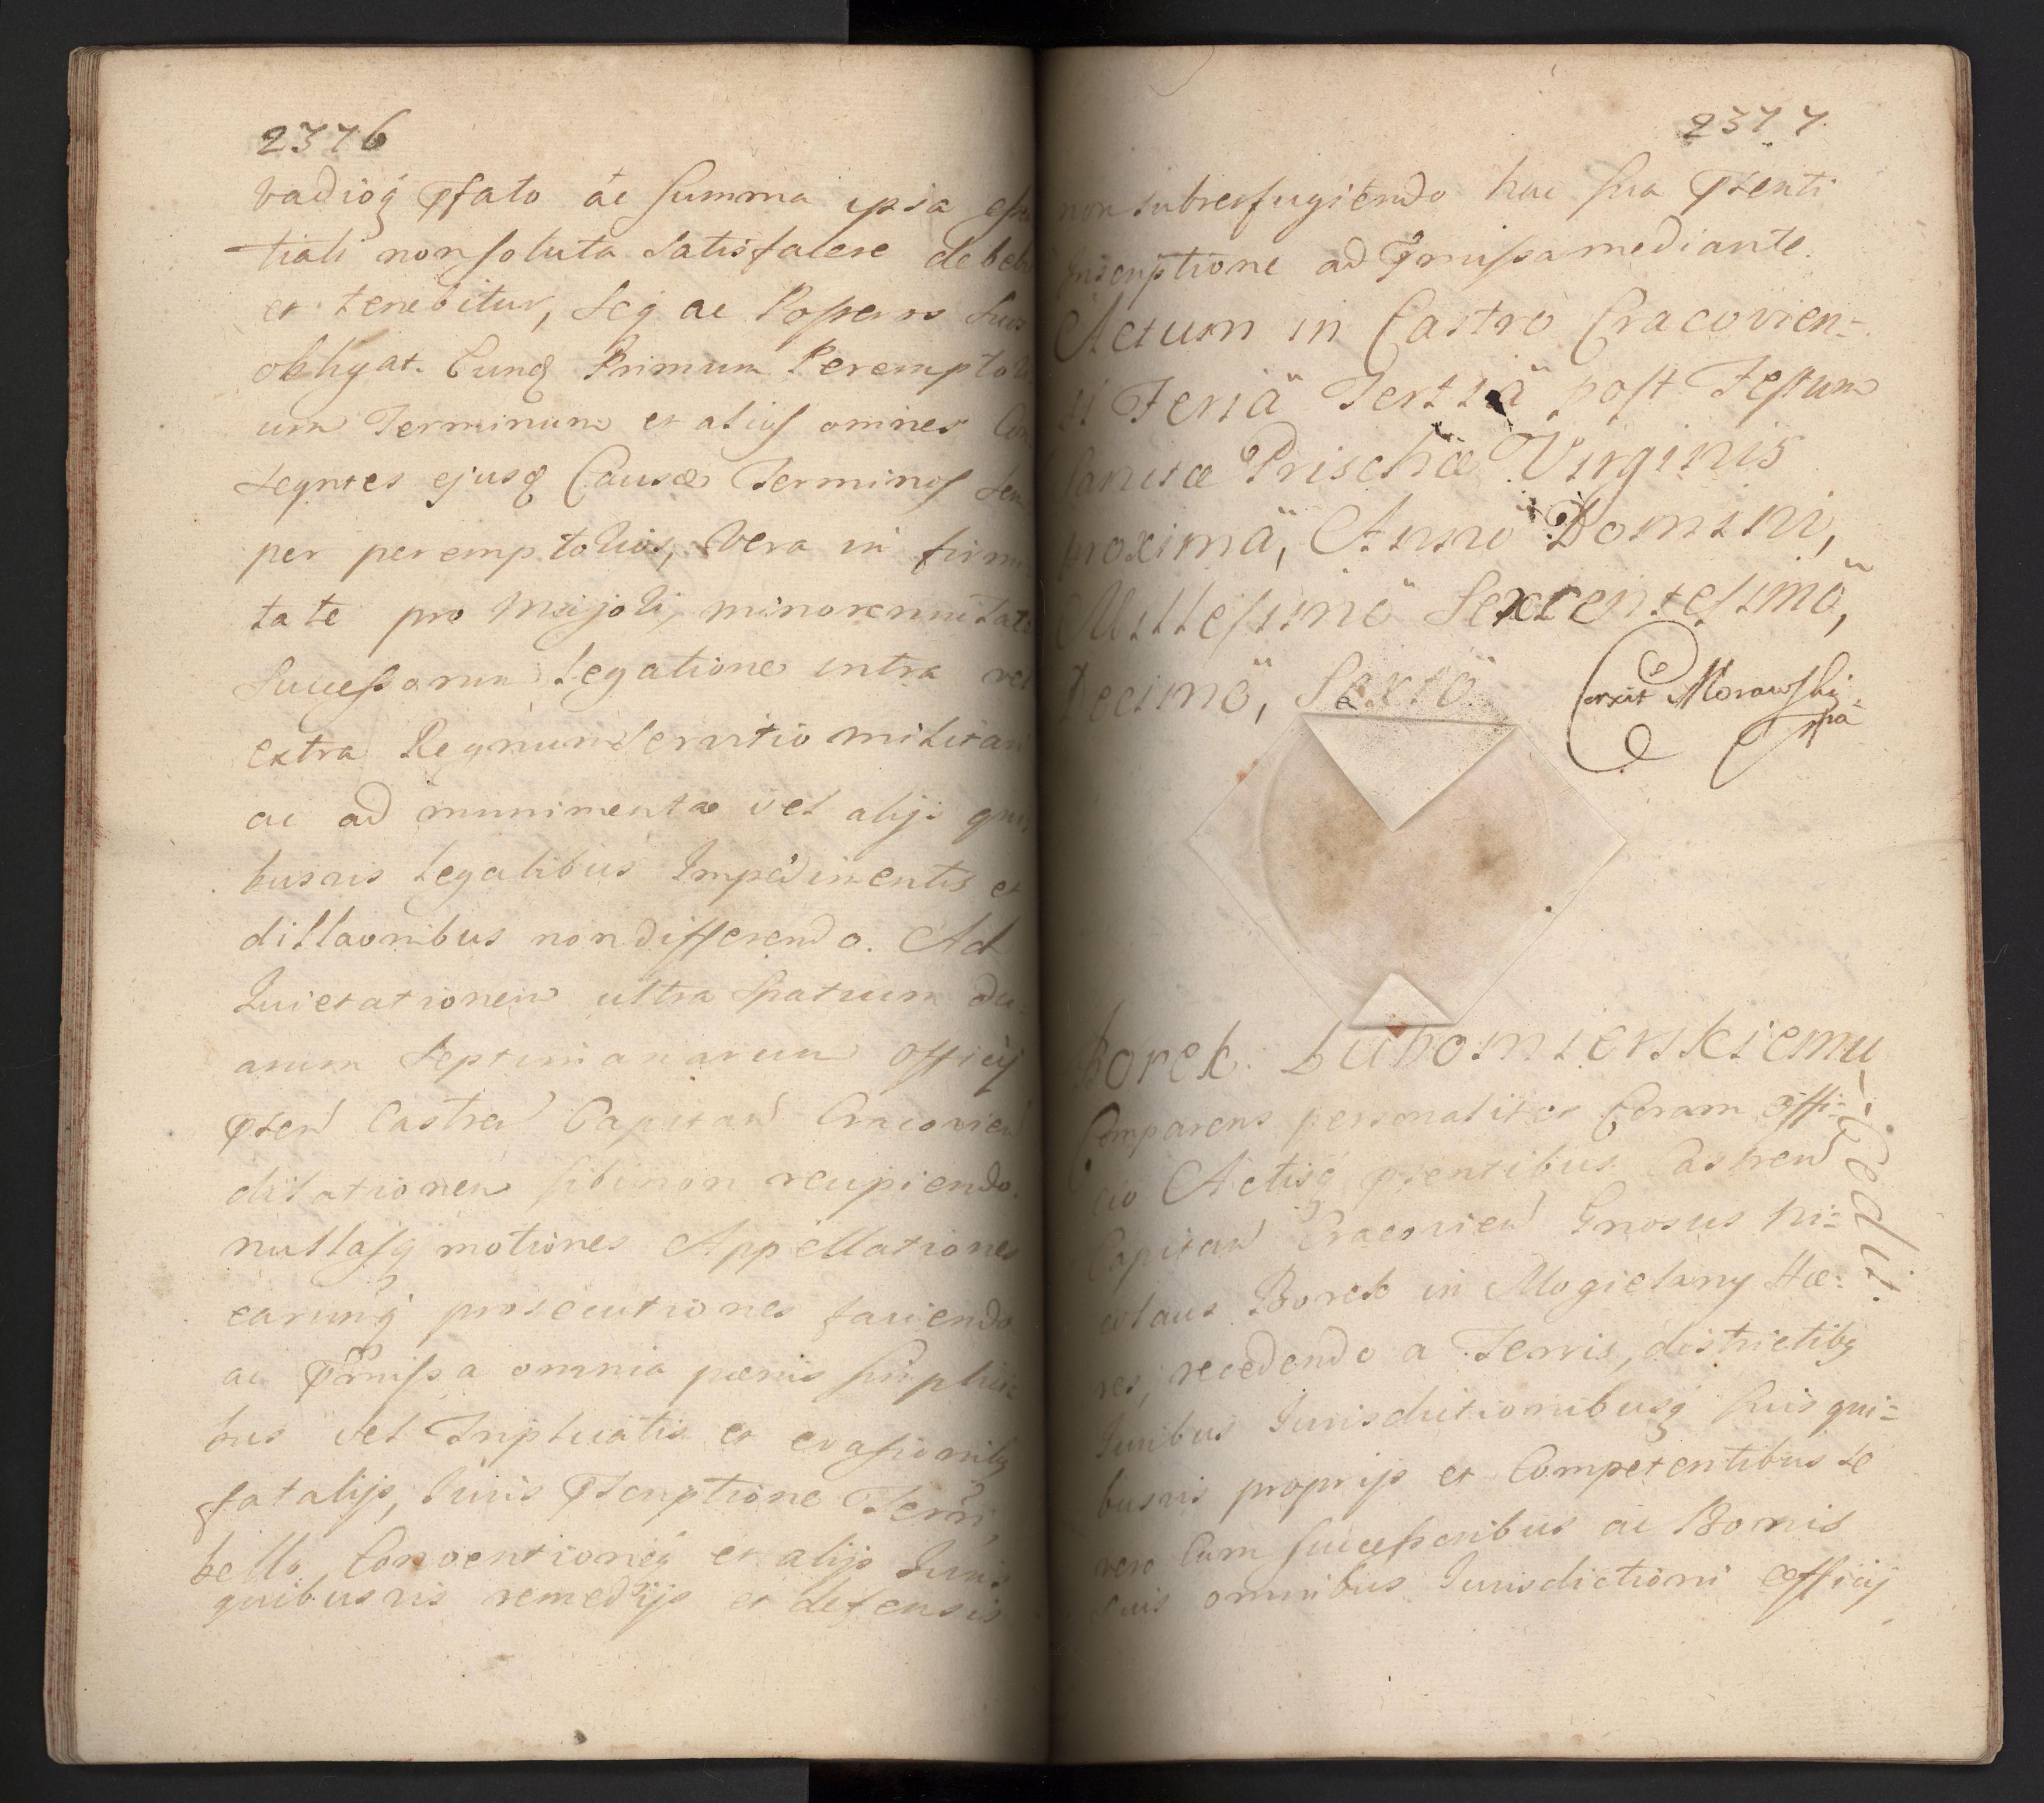 2376
vadioq pfato ac summa ipsa essen
tiali non soluta satisfacere debebit
et tenebitur, seq ac Posteros suos
obligat. Eunq Primum Peremptori
um Terminum et alios omnes Con
seqntes ejusq Causæ Terminos sem
per peremptorios, vera in firmi
tate pro Majori, minorennitate
Successorum Legatione intra vel
extra Regnum Servitio militari
ac ad munimenta vel alijs qui
busvis legalibus Impedimentis et
dillaonibus non differendo. Ad
Quietationem ultra Spatium du
arum Septimanarum Officij
psen Castren Capitan Cracovien
dilationem sibi non recipiendo.
nullasq motiones Appellationes
earumq prosecutiones faciendo
ac pmissa omnia pœnis simplici=
bus vel Triplicatis et evasionibq
fatalijs, Juris pscriptione Terri,
bello, Conventioneq et alijs Juris
quibusvis remedijs et defensis
2377.
non subterfugiendo hac sua psenti
Inscriptione ad pmissa mediante.
Actum in Castro Cracovien=
si Feriä Tertiä post Festum
Sanctæ Prischæ Virginis
proximä, Anno Domini,
Millesimö Sexcentesimö,
Decimö, Sexto
Corxit Morawski
mpa
Borek. Lubomierskiemu
Cedit.
Comparens personaliter Coram Offi=
cio Actisq psentibus Castren
Capitan Cracovien Gnosus Ni=
colaus Borek in Mogielany Hæ=
res, recedendo a Terris, districtibq
Juribus Jurisdictionibusq suis qui=
busvis proprijs et Competentibus se
vero Cum successoribus ac Bonis
suis omnibus Jurisdictioni Officij